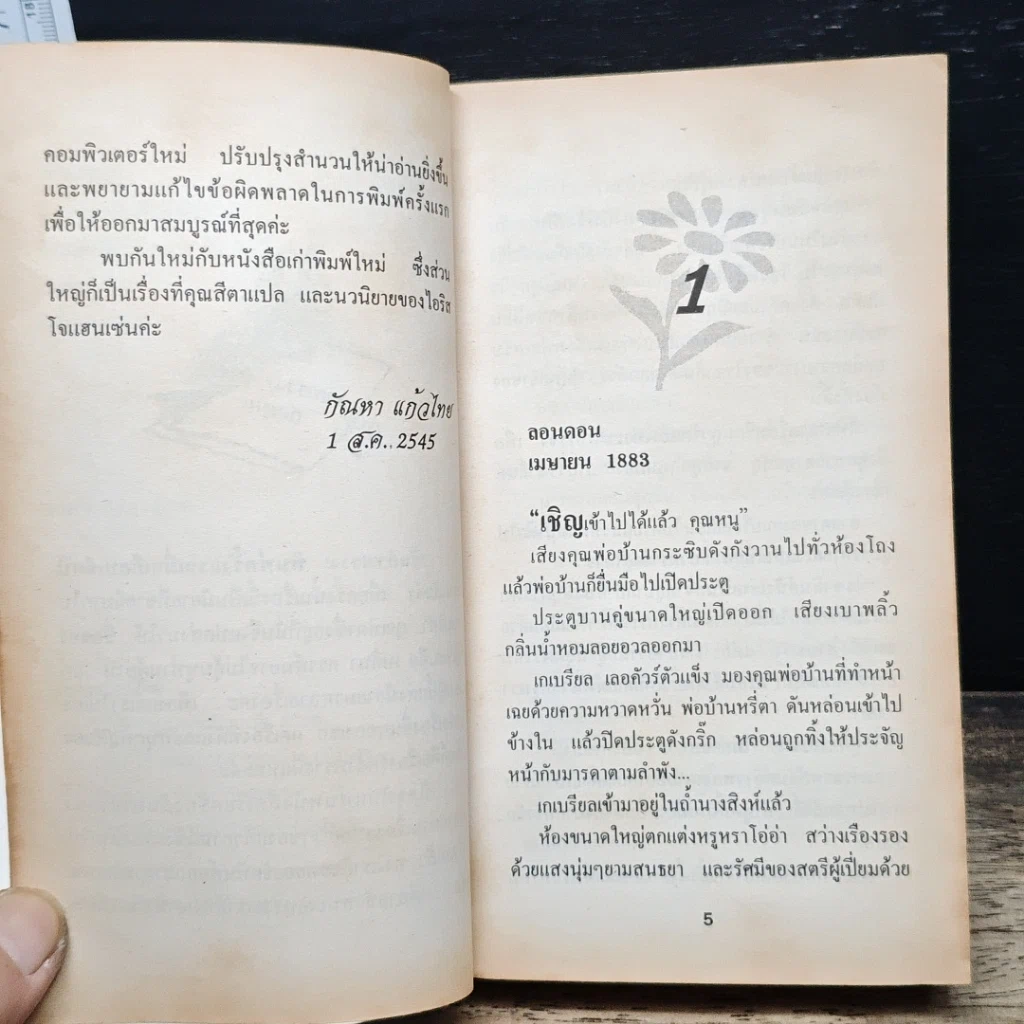 คอมพิวเตอร์ใหม่ ปรับปรุงสำนวนให้น่าอ่านยิ่งขึ้น
และพยายามแก้ไขข้อผิดพลาดในการพิมพ์ครั้งแรก
เพื่อให้ออกมาสมบูรณ์ที่สุดค่ะ
พบกันใหม่กับหนังสือเก่าพิมพ์ใหม่ ซึ่งส่วน
ใหญ่ก็เป็นเรื่องที่คุณสีตาแปล และนวนิยายของไอริส
โจแฮนเซ่นค่ะ
กัณหา แก้วไทย
1 ส.ค. 2545
1
ลอนดอน
เมษายน 1883
“เชิญเข้าไปได้แล้ว คุณหนู”
เสียงคุณพ่อบ้านกระซิบดังกังวานไปทั่วห้องโถง
แล้วพ่อบ้านก็ยื่นมือไปเปิดประตู
ประตูบานคู่ขนาดใหญ่เปิดออก เสียงเบาพลิ้ว
กลิ่นน้ำหอมลอยอวลออกมา
เกเบรียล เลอคัวร์ตัวแข็ง มองคุณพ่อบ้านที่ทำหน้า
เฉยด้วยความหวาดหวั่น พ่อบ้านหรี่ตา ดันหล่อนเข้าไป
ข้างใน แล้วปิดประตูดังกริ๊ก หล่อนถูกทิ้งให้ประจัญ
หน้ากับมารดาตามลำพัง...
เกเบรียลเข้ามาอยู่ในถ้ำนางสิงห์แล้ว
ห้องขนาดใหญ่ตกแต่งหรูหราโอ่อ่า สว่างเรืองรอง
ด้วยแสงนุ่มๆยามสนธยา และรัศมีของสตรีผู้เปี่ยมด้วย
5